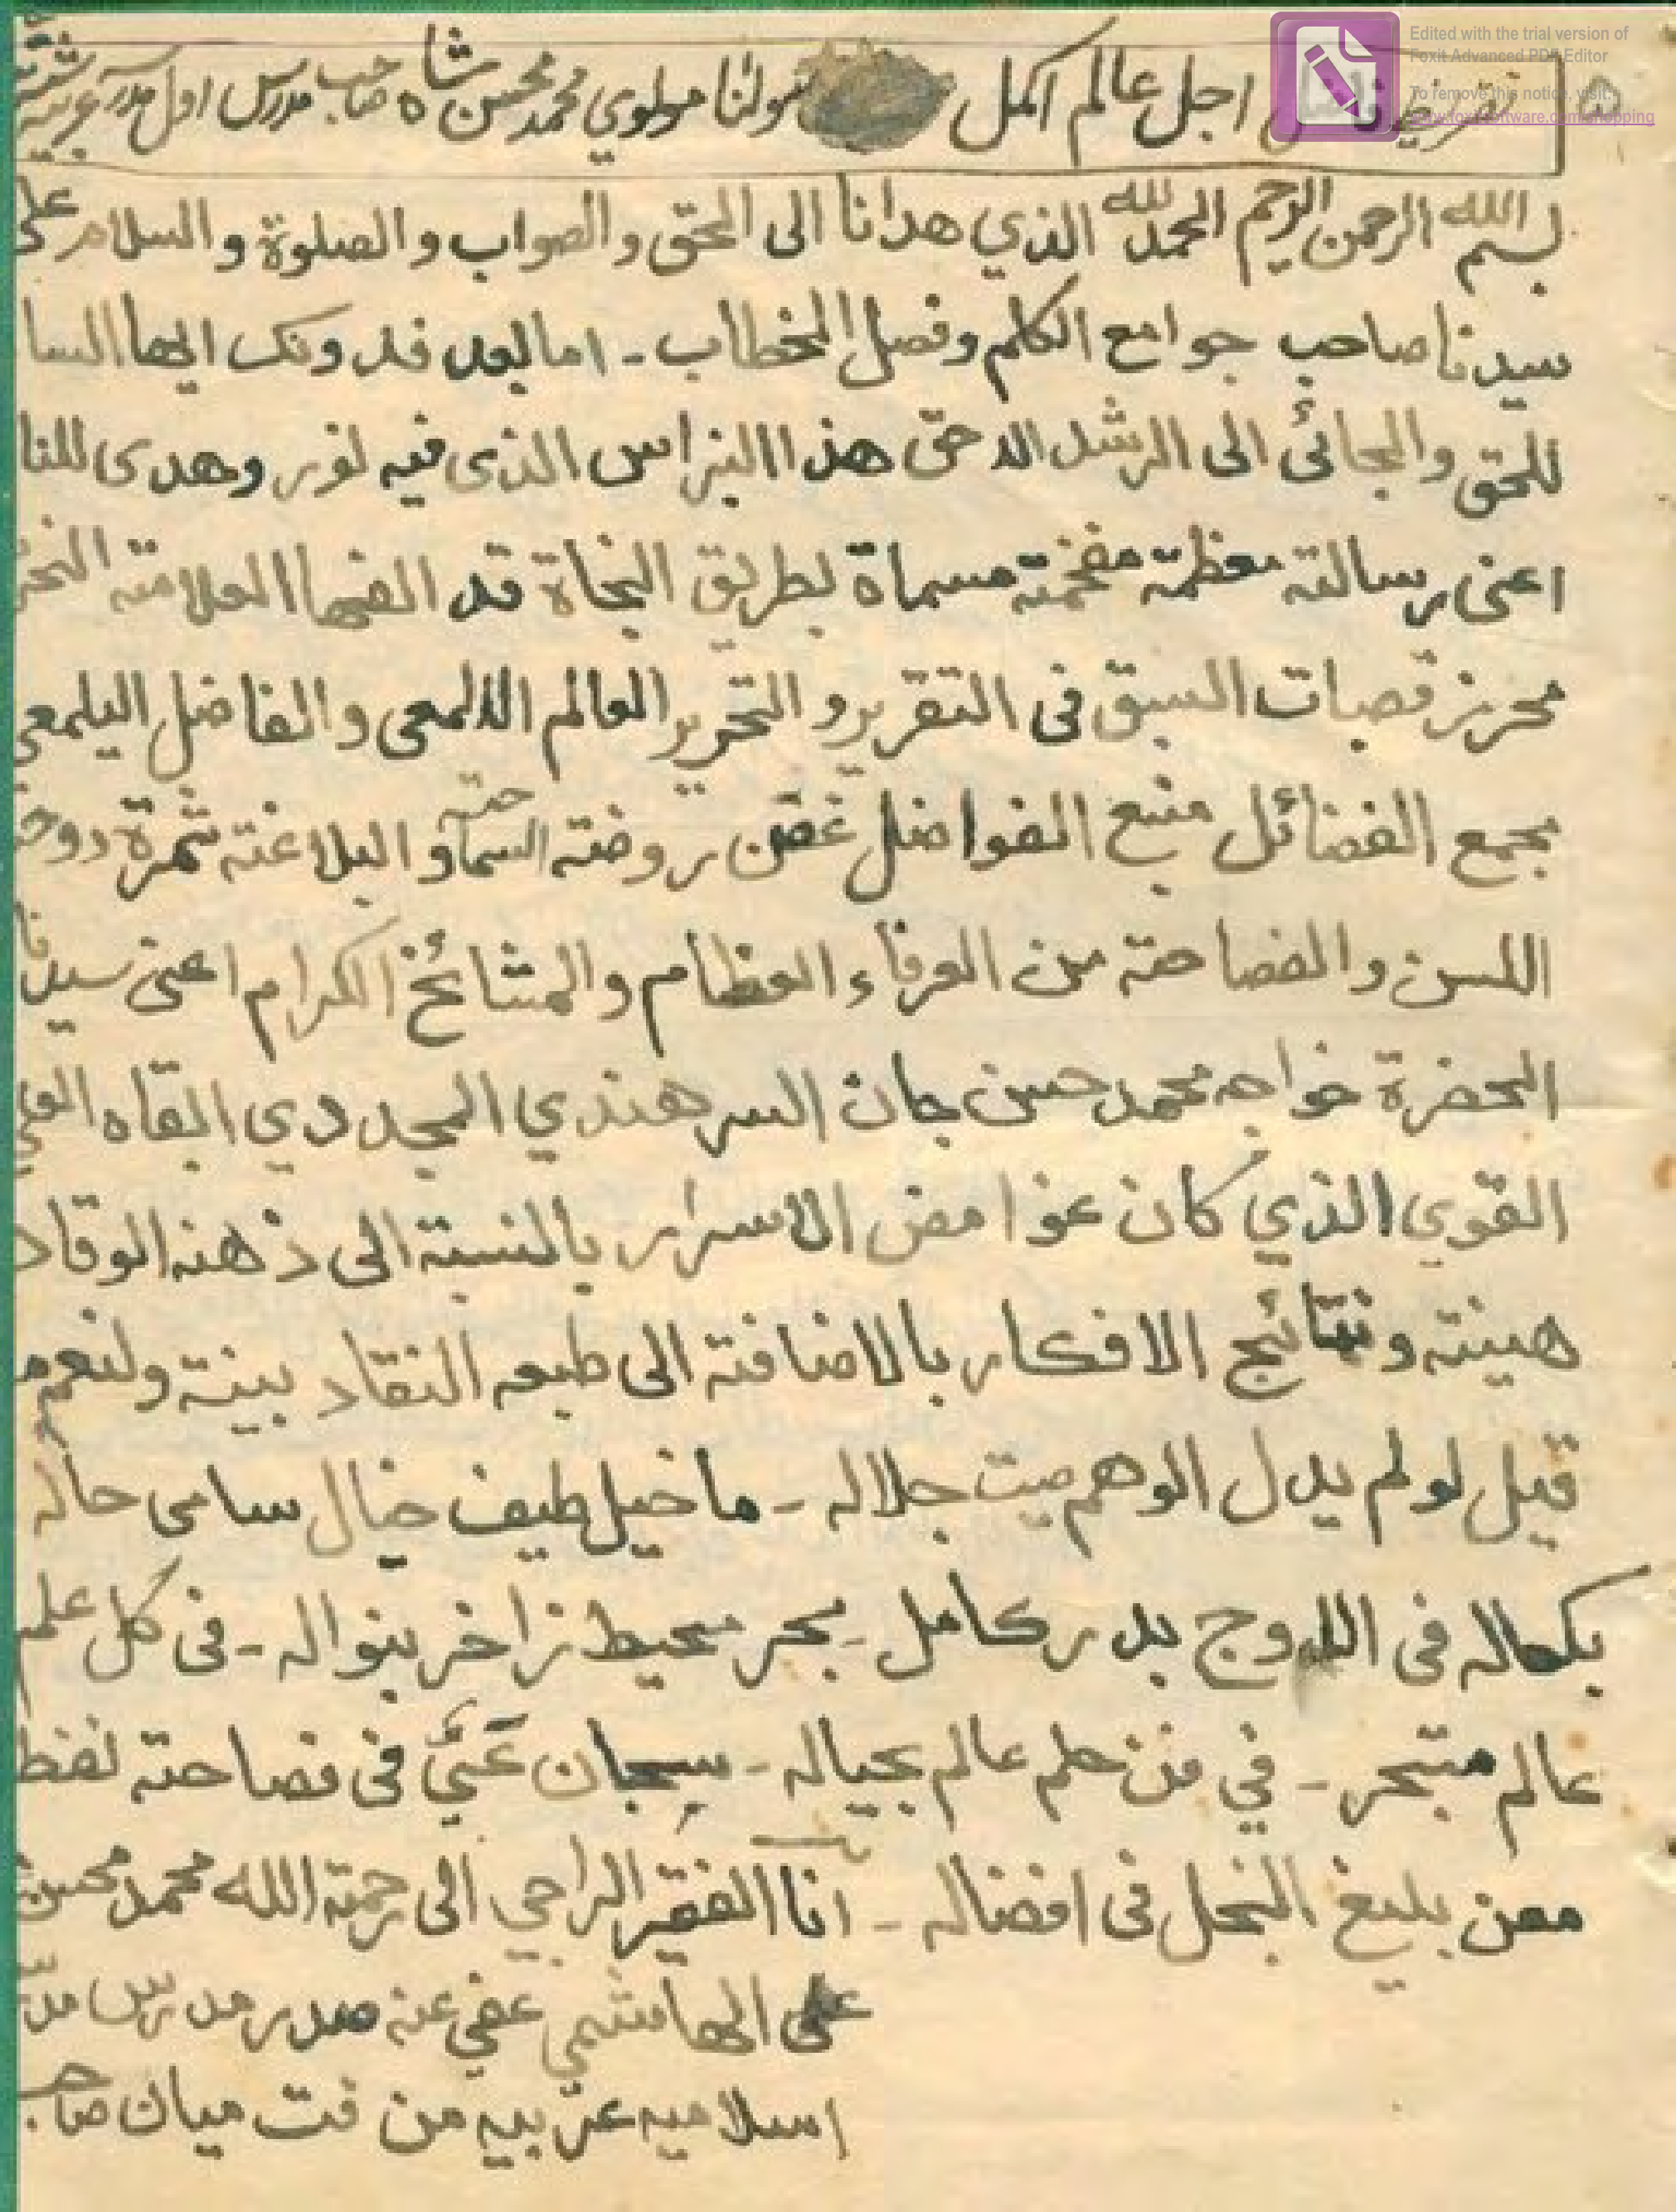 تقريظ فاضل اجل عالم اكمل مولنا مولوي محمد محسن شاه صاحب مدرس اول مدرسه عربيه
Edited with the trial version of
Foxit Advanced PDF Editor
To remove this notice, visit:
www.foxitsoftware.com/shopping
بسم الله الرحمن الرحيم الحمد لله الذي هدانا الى الحق والصواب والصلوة والسلام على
سيدنا صاحب جوامع الكلم وفصل الخطاب - اما بعد فدونك ايها السا
للحق والجائى الى الرشد الاحق هذا النبراس الذى فيه نور وهدى للنا
اعنى رسالته معظمته مفخمته مسماة بطريق النجاة قد الفها العلامته النحر
محرز قصبات السبق فى التقرير والتحرير العالم الالمعى والفاضل اليلمعي
مجمع الفضائل منبع الفواضل غصن روضته السماحته والبلاغته ثمرة دوحـ
اللسن والفصاحته من العرفاء العظام والمشائخ الكرام اعنى سيدنا
الحضرة خواجه محمد حسن جان السرهندي المجددي ابقاه
القوي الذي كان غوامض الاسرار بالنسبته الى ذهنه الوقاد
هينته ونتائج الافكار بالاضافته الى طبعه النقاد بينته ولنعم ما
قيل لو لم يدل الوهم صيت جلاله - ما خيل طيف خيال سامى حاله
بكماله فى الاوج بدر كامل - بحر محيط زاخر بنواله - فى كل علم
عالم متبحر - في فن حلم عالم بحياله - سحبان عَىّ فى فصاحته لفظ
معن بليغ البخل فى افضاله - انا الفقير الراجي الى رحمته الله محمد محسن
على الهاشمي عفي عنه صدر مدرس
اسلاميه عربيه من فت ميان صاحب